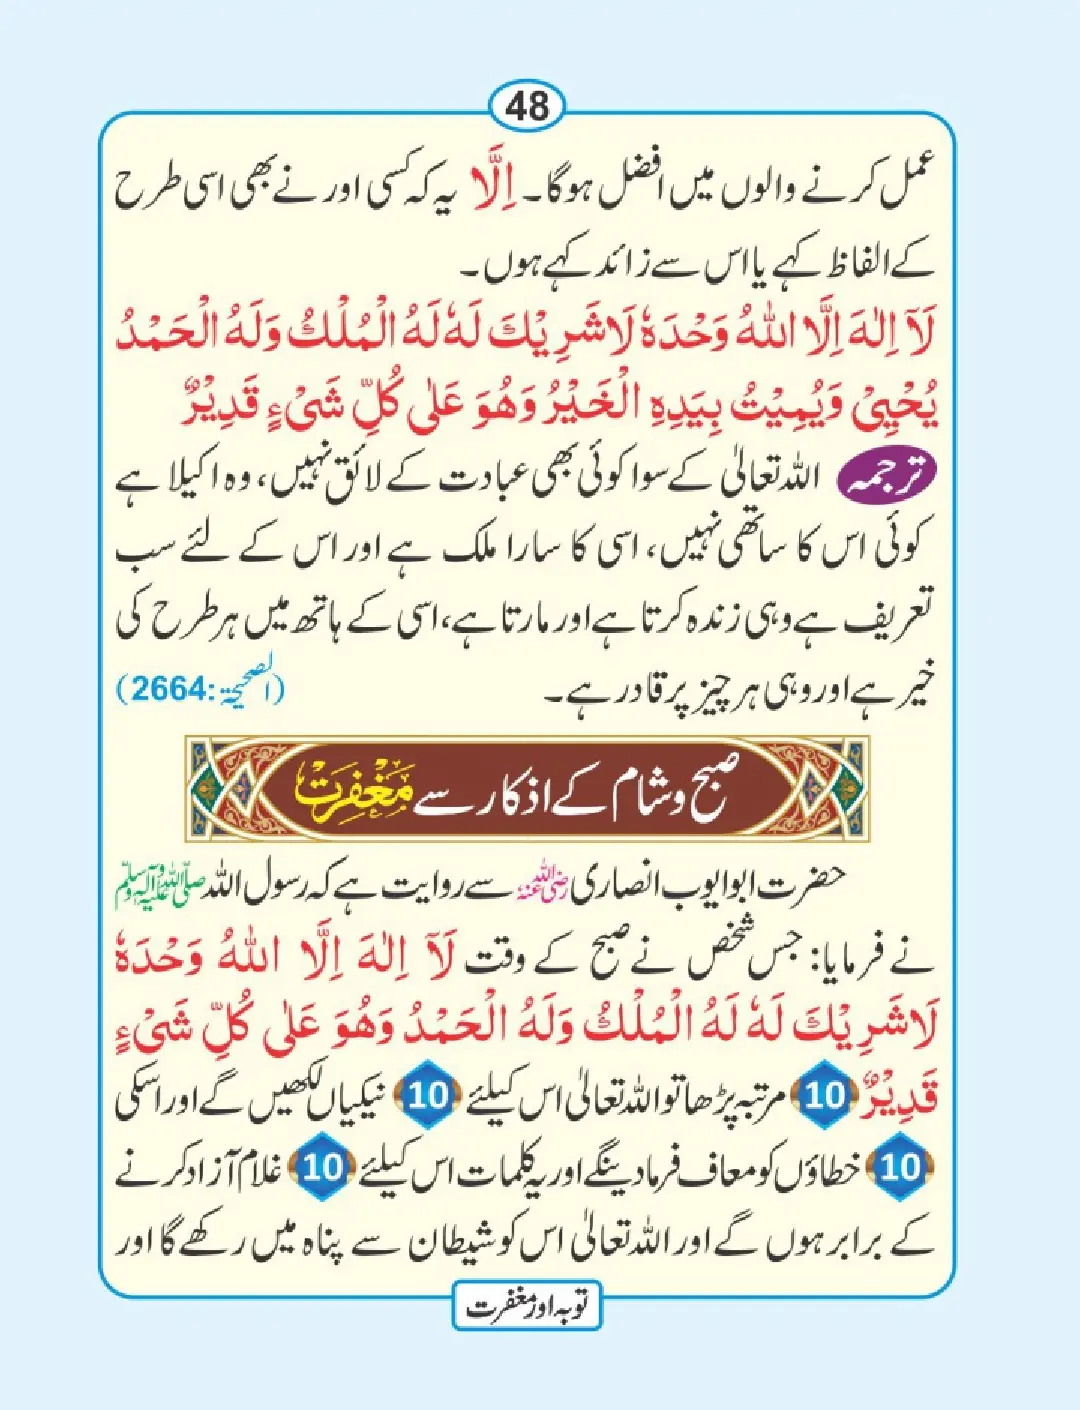 48
عمل کرنے والوں میں افضل ہوگا۔ اِلَّا یہ کہ کسی اور نے بھی اسی طرح
کے الفاظ کہے یا اس سے زائد کہے ہوں۔
لَآ اِلٰهَ اِلَّا اللّٰهُ وَحْدَهٗ لَاشَرِيْكَ لَهٗ لَهُ الْمُلْكُ وَلَهُ الْحَمْدُ
يُحْيِيْ وَيُمِيْتُ بِيَدِهِ الْخَيْرُ وَهُوَ عَلٰى كُلِّ شَيْءٍ قَدِيْرٌ
ترجمہ اللہ تعالیٰ کے سوا کوئی بھی عبادت کے لائق نہیں، وہ اکیلا ہے
کوئی اس کا ساتھی نہیں، اسی کا سارا ملک ہے اور اس کے لئے سب
تعریف ہے وہی زندہ کرتا ہے اور مارتا ہے، اسی کے ہاتھ میں ہر طرح کی
خیر ہے اور وہی ہر چیز پر قادر ہے۔ (الصحیحۃ:2664)
صبح و شام کے اذکار سے مَغْفِرَتْ
حضرت ابوایوب انصاری رضی اللہ عنہ سے روایت ہے کہ رسول اللہ صلی اللہ علیہ وآلہ وسلم
نے فرمایا: جس شخص نے صبح کے وقت لَآ اِلٰهَ اِلَّا اللّٰهُ وَحْدَهٗ
لَاشَرِيْكَ لَهٗ لَهُ الْمُلْكُ وَلَهُ الْحَمْدُ وَهُوَ عَلٰى كُلِّ شَيْءٍ
قَدِيْرٌ 10 مرتبہ پڑھا تو اللہ تعالیٰ اس کیلئے 10 نیکیاں لکھیں گے اور اسکی
10 خطاؤں کو معاف فرما دینگے اور یہ کلمات اس کیلئے 10 غلام آزاد کرنے
کے برابر ہوں گے اور اللہ تعالیٰ اس کو شیطان سے پناہ میں رکھے گا اور
توبہ اور مغفرت